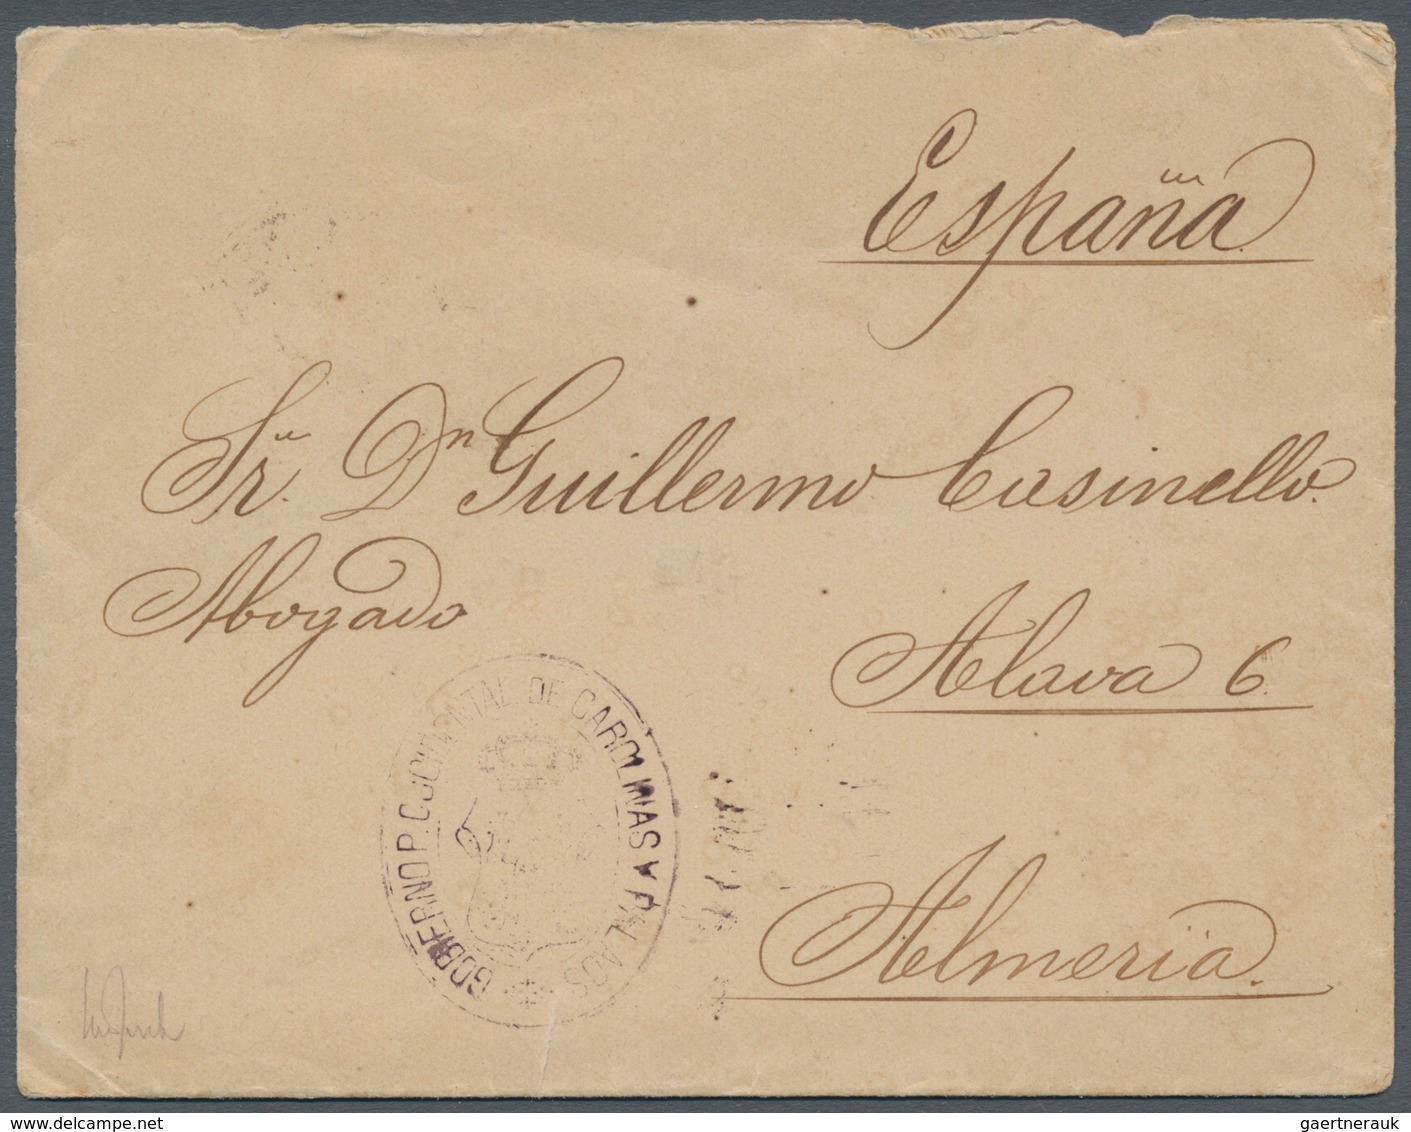 España
Sr. Dn Guillermo Casinello.
Abogado
Alava 6.
GOBIERNO P. O OCCIDENTAL DE CAROLINAS Y PALAOS
Almeria.
gaertnerauk